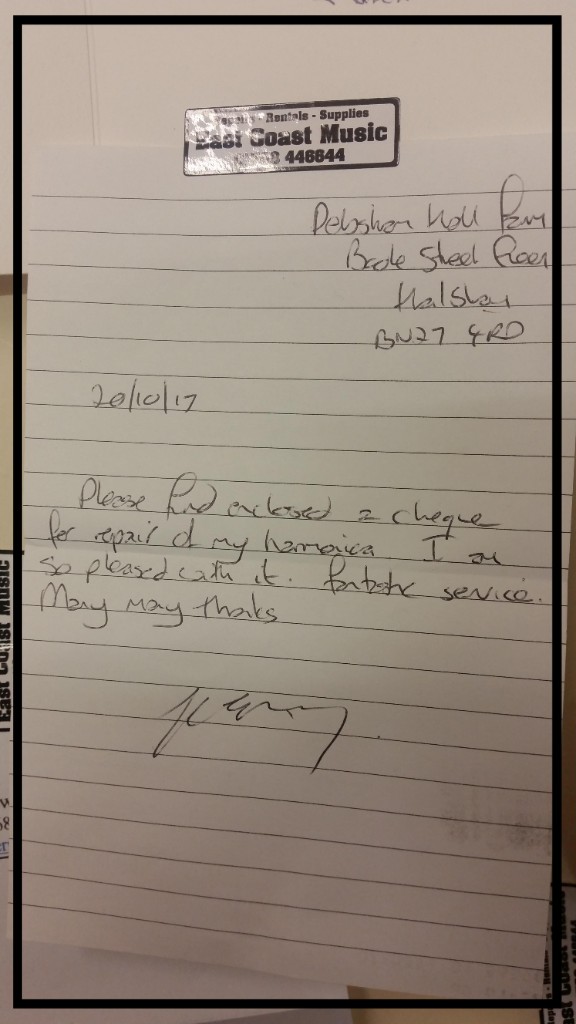 Repairs - Rentals - Supplies
East Coast Music
446644
Hall Farm
BN27 4RD
20/10/17
Please find enclosed a cheque
for repair of my harmonica. I am
so pleased with it. fantastic service.
Many many thanks
East Coast Music